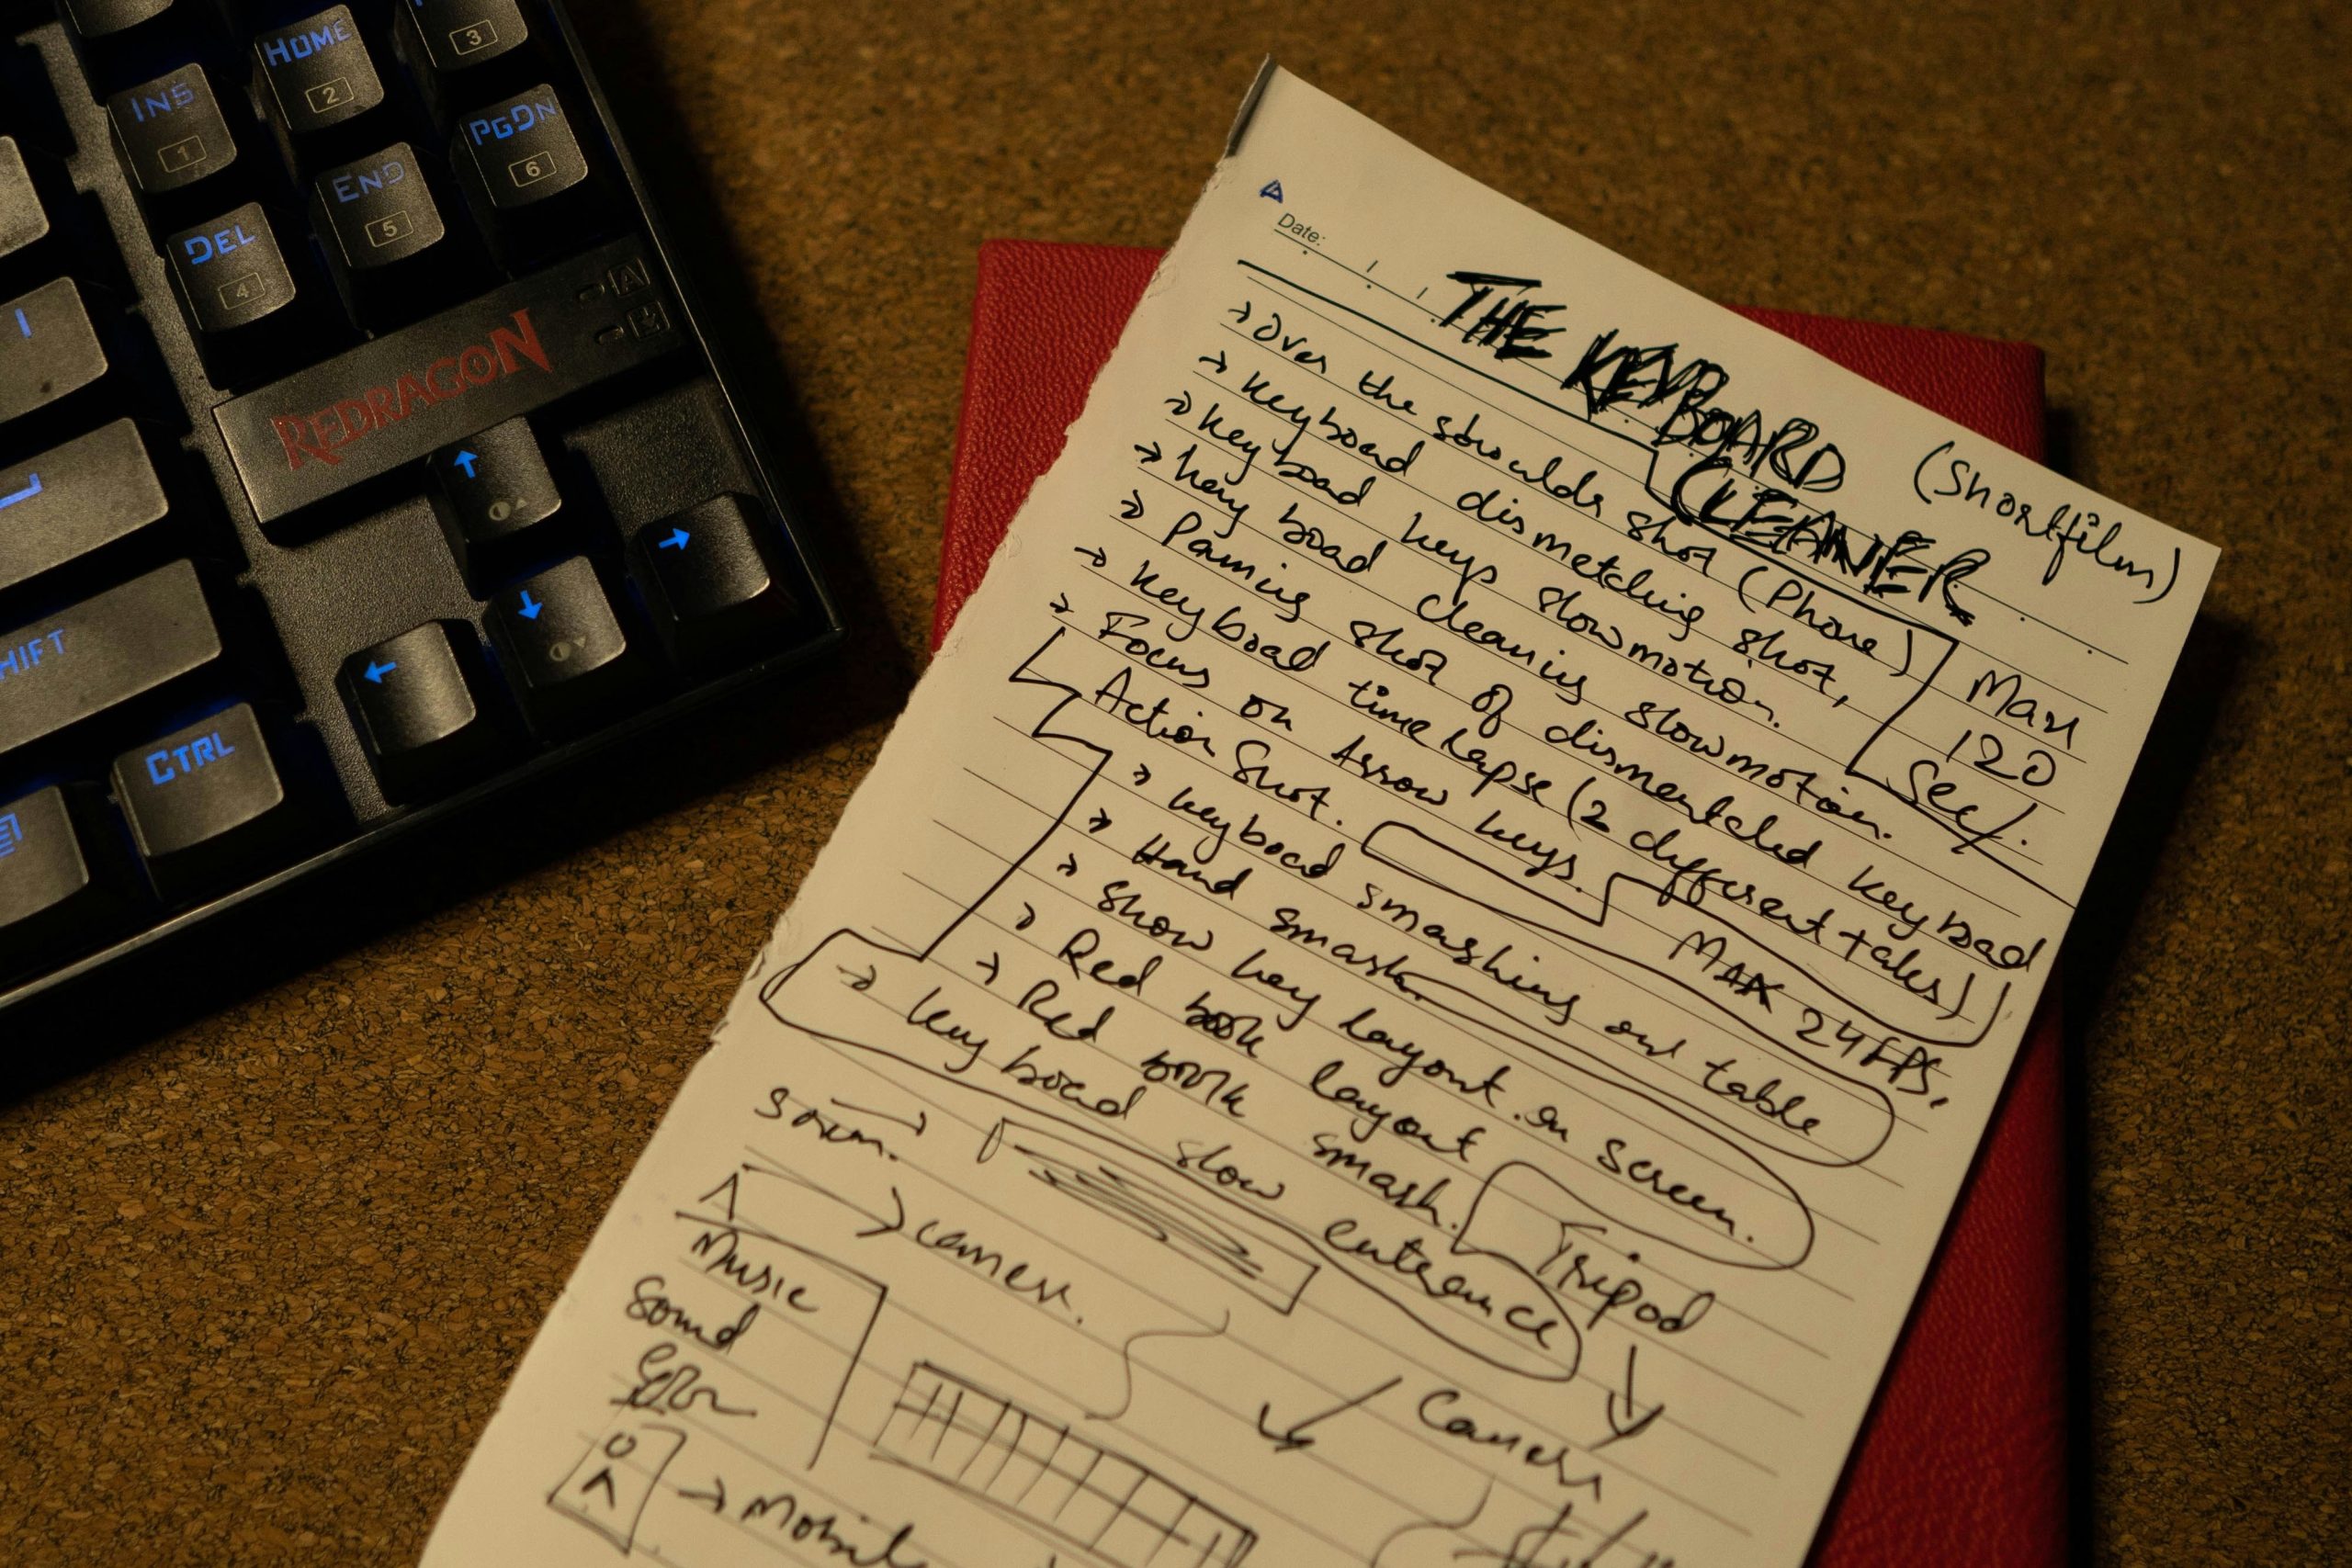 HOME
3
INS
2
PGDN
1
END
6
DEL
5
4
A
REDRAGON
SHIFT
CTRL
Date:
THE KEYBOARD
CLEANER
(Shortfilm)
→ Over the shoulder shot (Phone)
→ Keyboard dismetching shot,
→ Keyboad keys slowmotion.
→ key boad cleaning slowmotion.
→ Paming shot of dismentcled keyboad
→ Keyboad time lapse (2 different takes)
→ Focus on Arrow keys.
Max
120
Sec/.
Action Shot.
MAX 24FPS,
→ keyboad smashing on table
→ Hand smash
→ Show key layout on screen.
→ Red book layout
→ Red book smash.
→ Key boad slow entrance
Tripod
50mm.
→ camera.
Music
Sound
Camera
→ Mobile